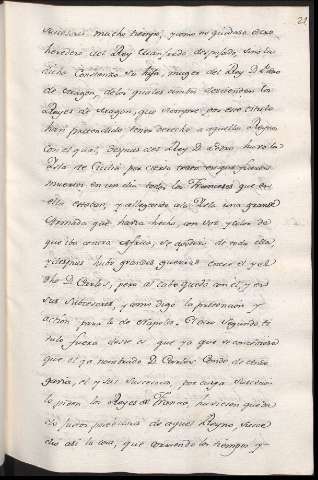 21
mucho tiempo, y como no quedase otro
heredero del Rey Manfredo despojado, sino la
dicha Constanza su hija, muger del Rey D. Pedro
de Aragon, de los quales ambos descienden los
Reyes de Aragon, que siempre por este titulo
han pretendido tener derecho a aquellos Reynos
con el qual, despues del Rey D. Pedro hurto la
Isla de Cicilia por cierto trato en que fueron
muertos en un dia todos los Franceses que en
ella estaban, y allegando a la Isla una grande
Armada que havia hecho, con voz y color de
que iba contra Africa, se apoderó de toda ella,
y despues hubo grandes guerras entre el y el
dho D. Carlos, pero al cabo quedó con el, y en
sus Subcesores, y como digo la pretencion y
accion para lo de Napoles. El otro segundo ti
tulo fuera deste es que ya que se concediera
que el ya nombrado D. Carlos Conde de
el y sus Subcesores, por cuya Subcecion
lo piden los Reyes de Francia, huviesen queda
do justos poseedores de aquel Reyno, suce
dio asi la cosa, que corriendo los tiempos y